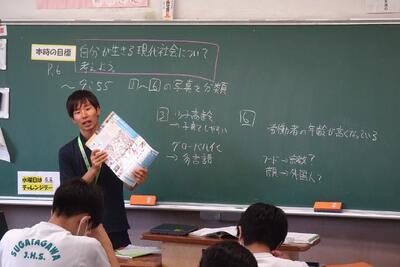 本時の目標
自分が生きる現代社会について
考えよう。
P.6
～9:55 ①～⑥の写真を分類
③ 少子高齢
→ 子育てしやすい
グローバル化
→ 多言語
⑥
労働者の年齢が高くなっている
フード→宗教?
→外国人?
水曜日は
チャレンジデー
SUGARAGAWA
J.H.S.